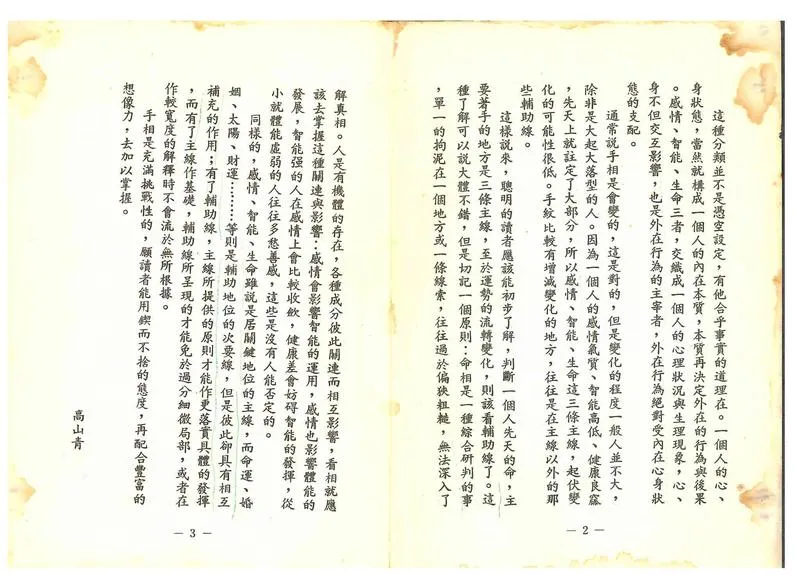 這種分類並不是憑空設定，有他合乎事實的道理在。一個人的心、
身狀態，當然就構成一個人的內在本質，本質再決定外在的行為與後果
。感情、智能、生命三者，交織成一個人的心理狀況與生理現象，心、
身不但交互影響，也是外在行為的主宰者，外在行為絕對受內在心身狀
態的支配。
通常說手相是會變的，這是對的，但是變化的程度一般人並不大，
除非是大起大落型的人。因為一個人的感情氣質、智能高低、健康良窳
，先天上就註定了大部分，所以感情、智能、生命這三條主線，起伏變
化的可能性很低。手紋比較有增減變化的地方，往往是在主線以外的那
些輔助線。
這樣說來，聰明的讀者應該能初步了解，判斷一個人先天的命，主
要著手的地方是三條主線，至於運勢的流轉變化，則該看輔助線了。這
種了解可以說大體不錯，但是切記一個原則：命相是一種綜合研判的事
，單一的拘泥在一個地方或一條線索，往往過於偏狹粗糙，無法深入了
— 2 —
解真相。人是有機體的存在，各種成分彼此關連而相互影響，看相就應
該去掌握這種關連與影響：感情會影響智能的運用，感情也影響體能的
發展，智能強的人在感情上會比較收歛，健康差會妨碍智能的發揮，從
小就體能虛弱的人往往多愁善感，這些是沒有人能否定的。
同樣的，感情、智能、生命雖說是居關鍵地位的主線，而命運、婚
姻、太陽、財運………等則是輔助地位的次要線，但是彼此卻具有相互
補充的作用；有了輔助線，主線所提供的原則才能作更落實具體的發揮
，而有了主線作基礎，輔助線所呈現的才能免於過分細微局部，或者在
作較寬度的解釋時不會流於無所根據。
手相是充滿挑戰性的，願讀者能用鍥而不捨的態度，再配合豐富的
想像力，去加以掌握。
高山青
— 3 —